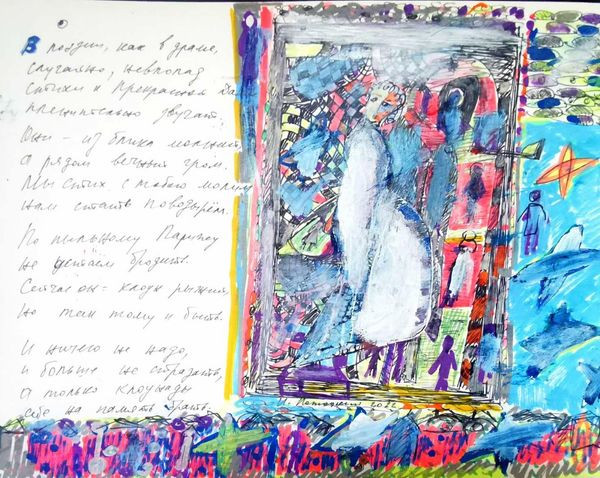 В поэзии, как в драме,
случайно, невпопад
стихи к Прекрасной Да
пленительно звучат.
Они – из блика молний,
а рядом вечный гром.
Мы стих с тобою молим
нам стать поводырём.
По пыльному Парнасу
не устаём бродить.
Сейчас бы –
Но так тому и быть.
И ничего не надо,
и больше не страдать,
а только клоунады
себе на память брать.
2022